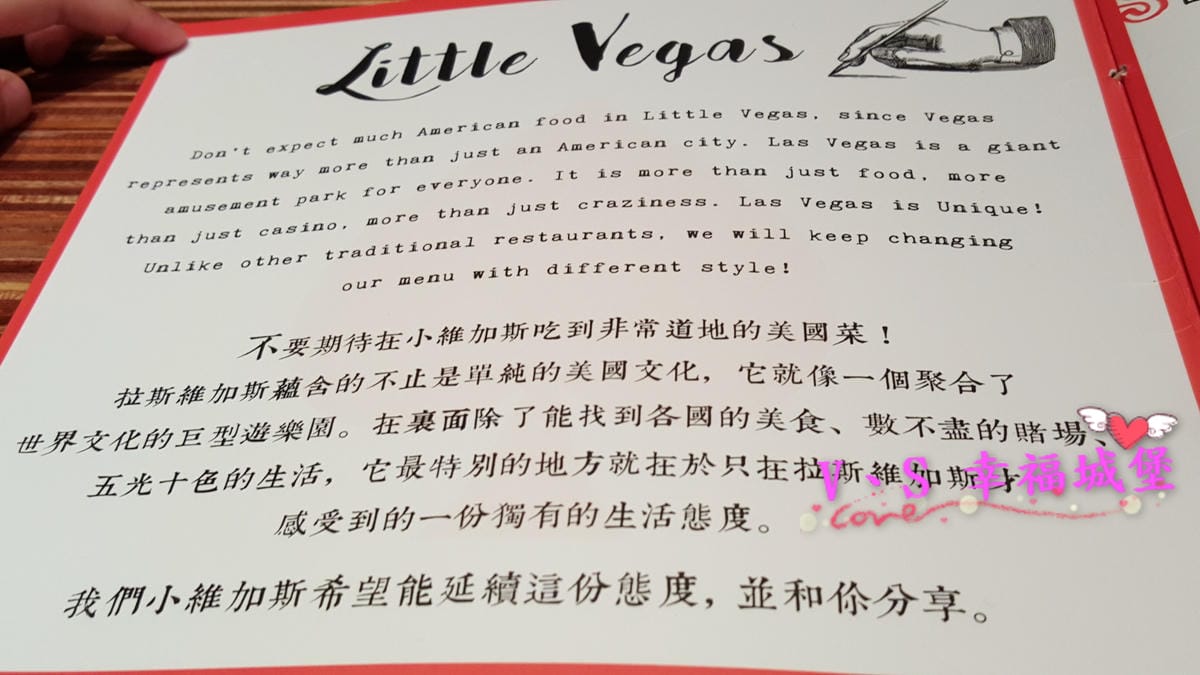 Little Vegas
Don't expect much American food in Little Vegas, since Vegas
represents way more than just an American city. Las Vegas is a giant
amusement park for everyone. It is more than just food, more
than just casino, more than just craziness. Las Vegas is Unique!
Unlike other traditional restaurants, we will keep changing
our menu with different style!
不要期待在小維加斯吃到非常道地的美國菜！
拉斯維加斯蘊含的不止是單純的美國文化，它就像一個聚合了
世界文化的巨型遊樂園。在裏面除了能找到各國的美食、數不盡的賭場、
五光十色的生活，它最特別的地方就在於只在拉斯維加斯才
感受到的一份獨有的生活態度。
我們小維加斯希望能延續這份態度，並和你分享。
V、S 幸福城堡
Love